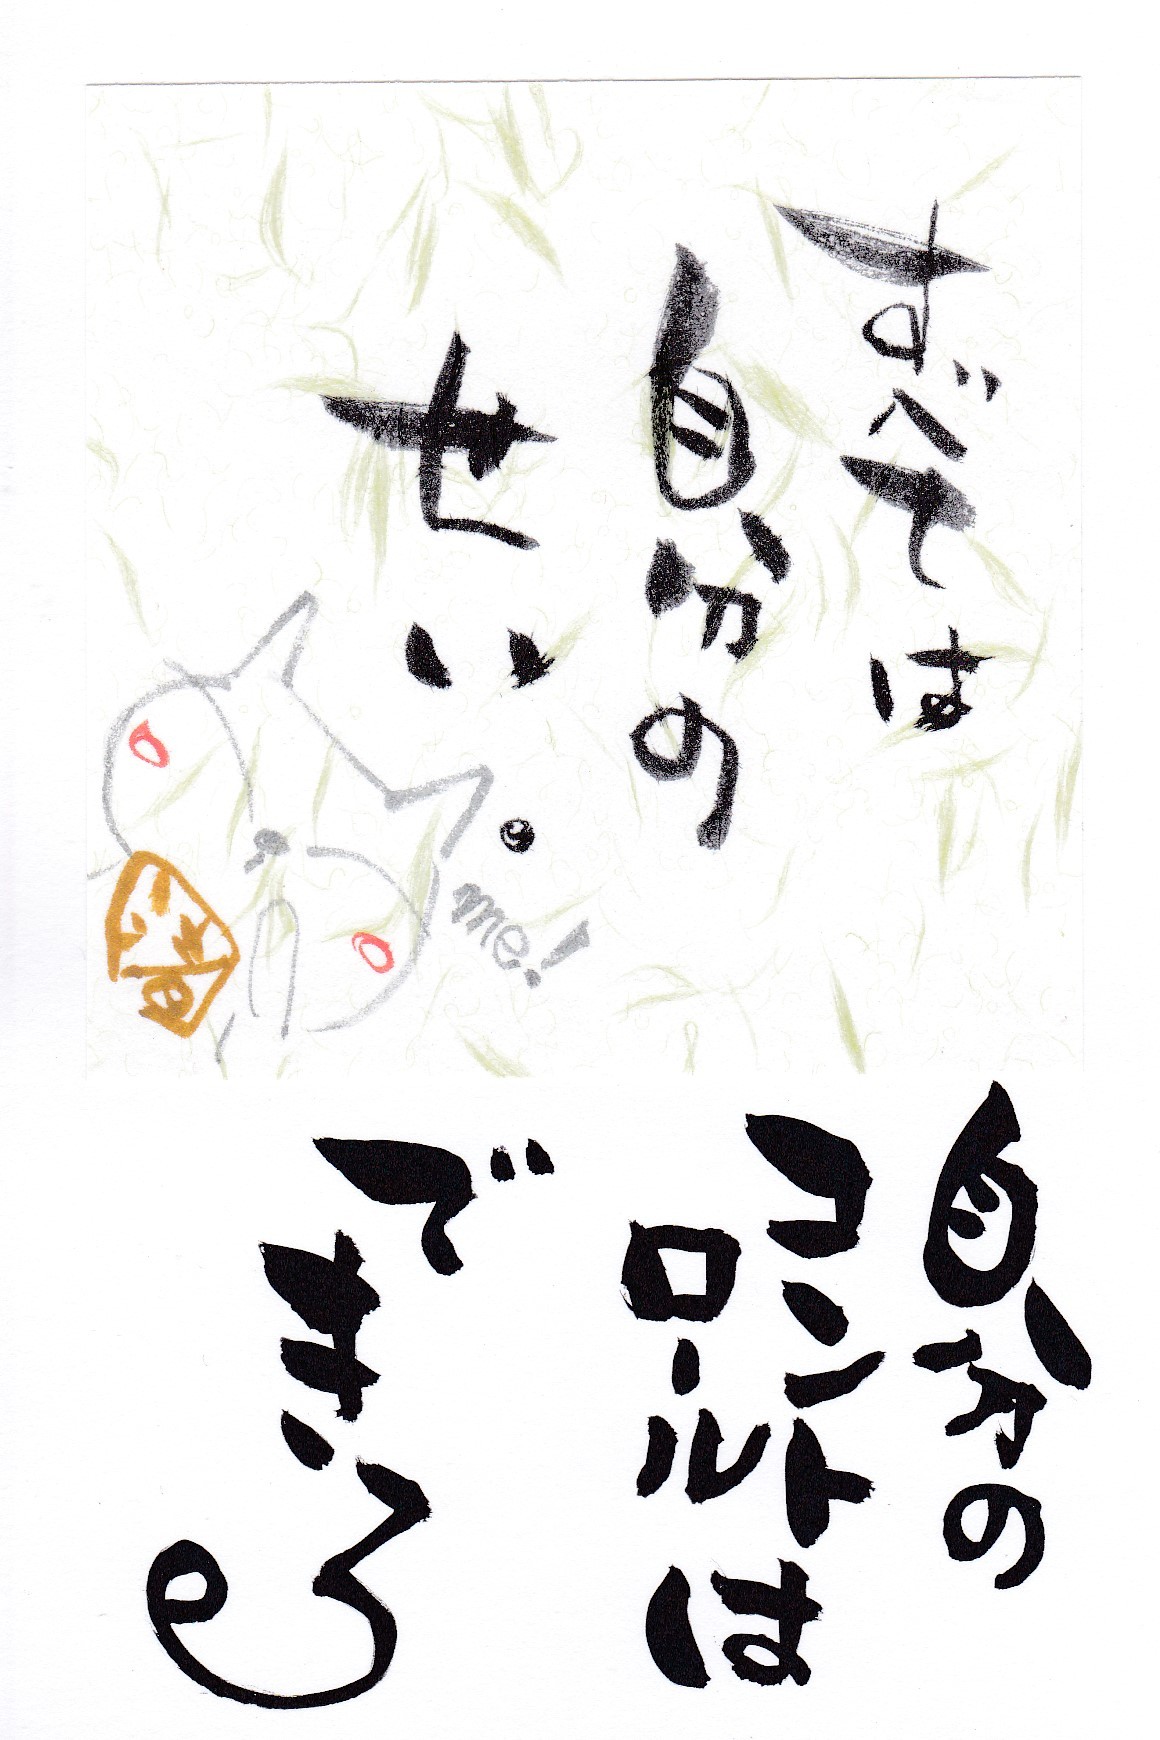 すべては
自分の
せい
me!
自分の
コントロールは
できる